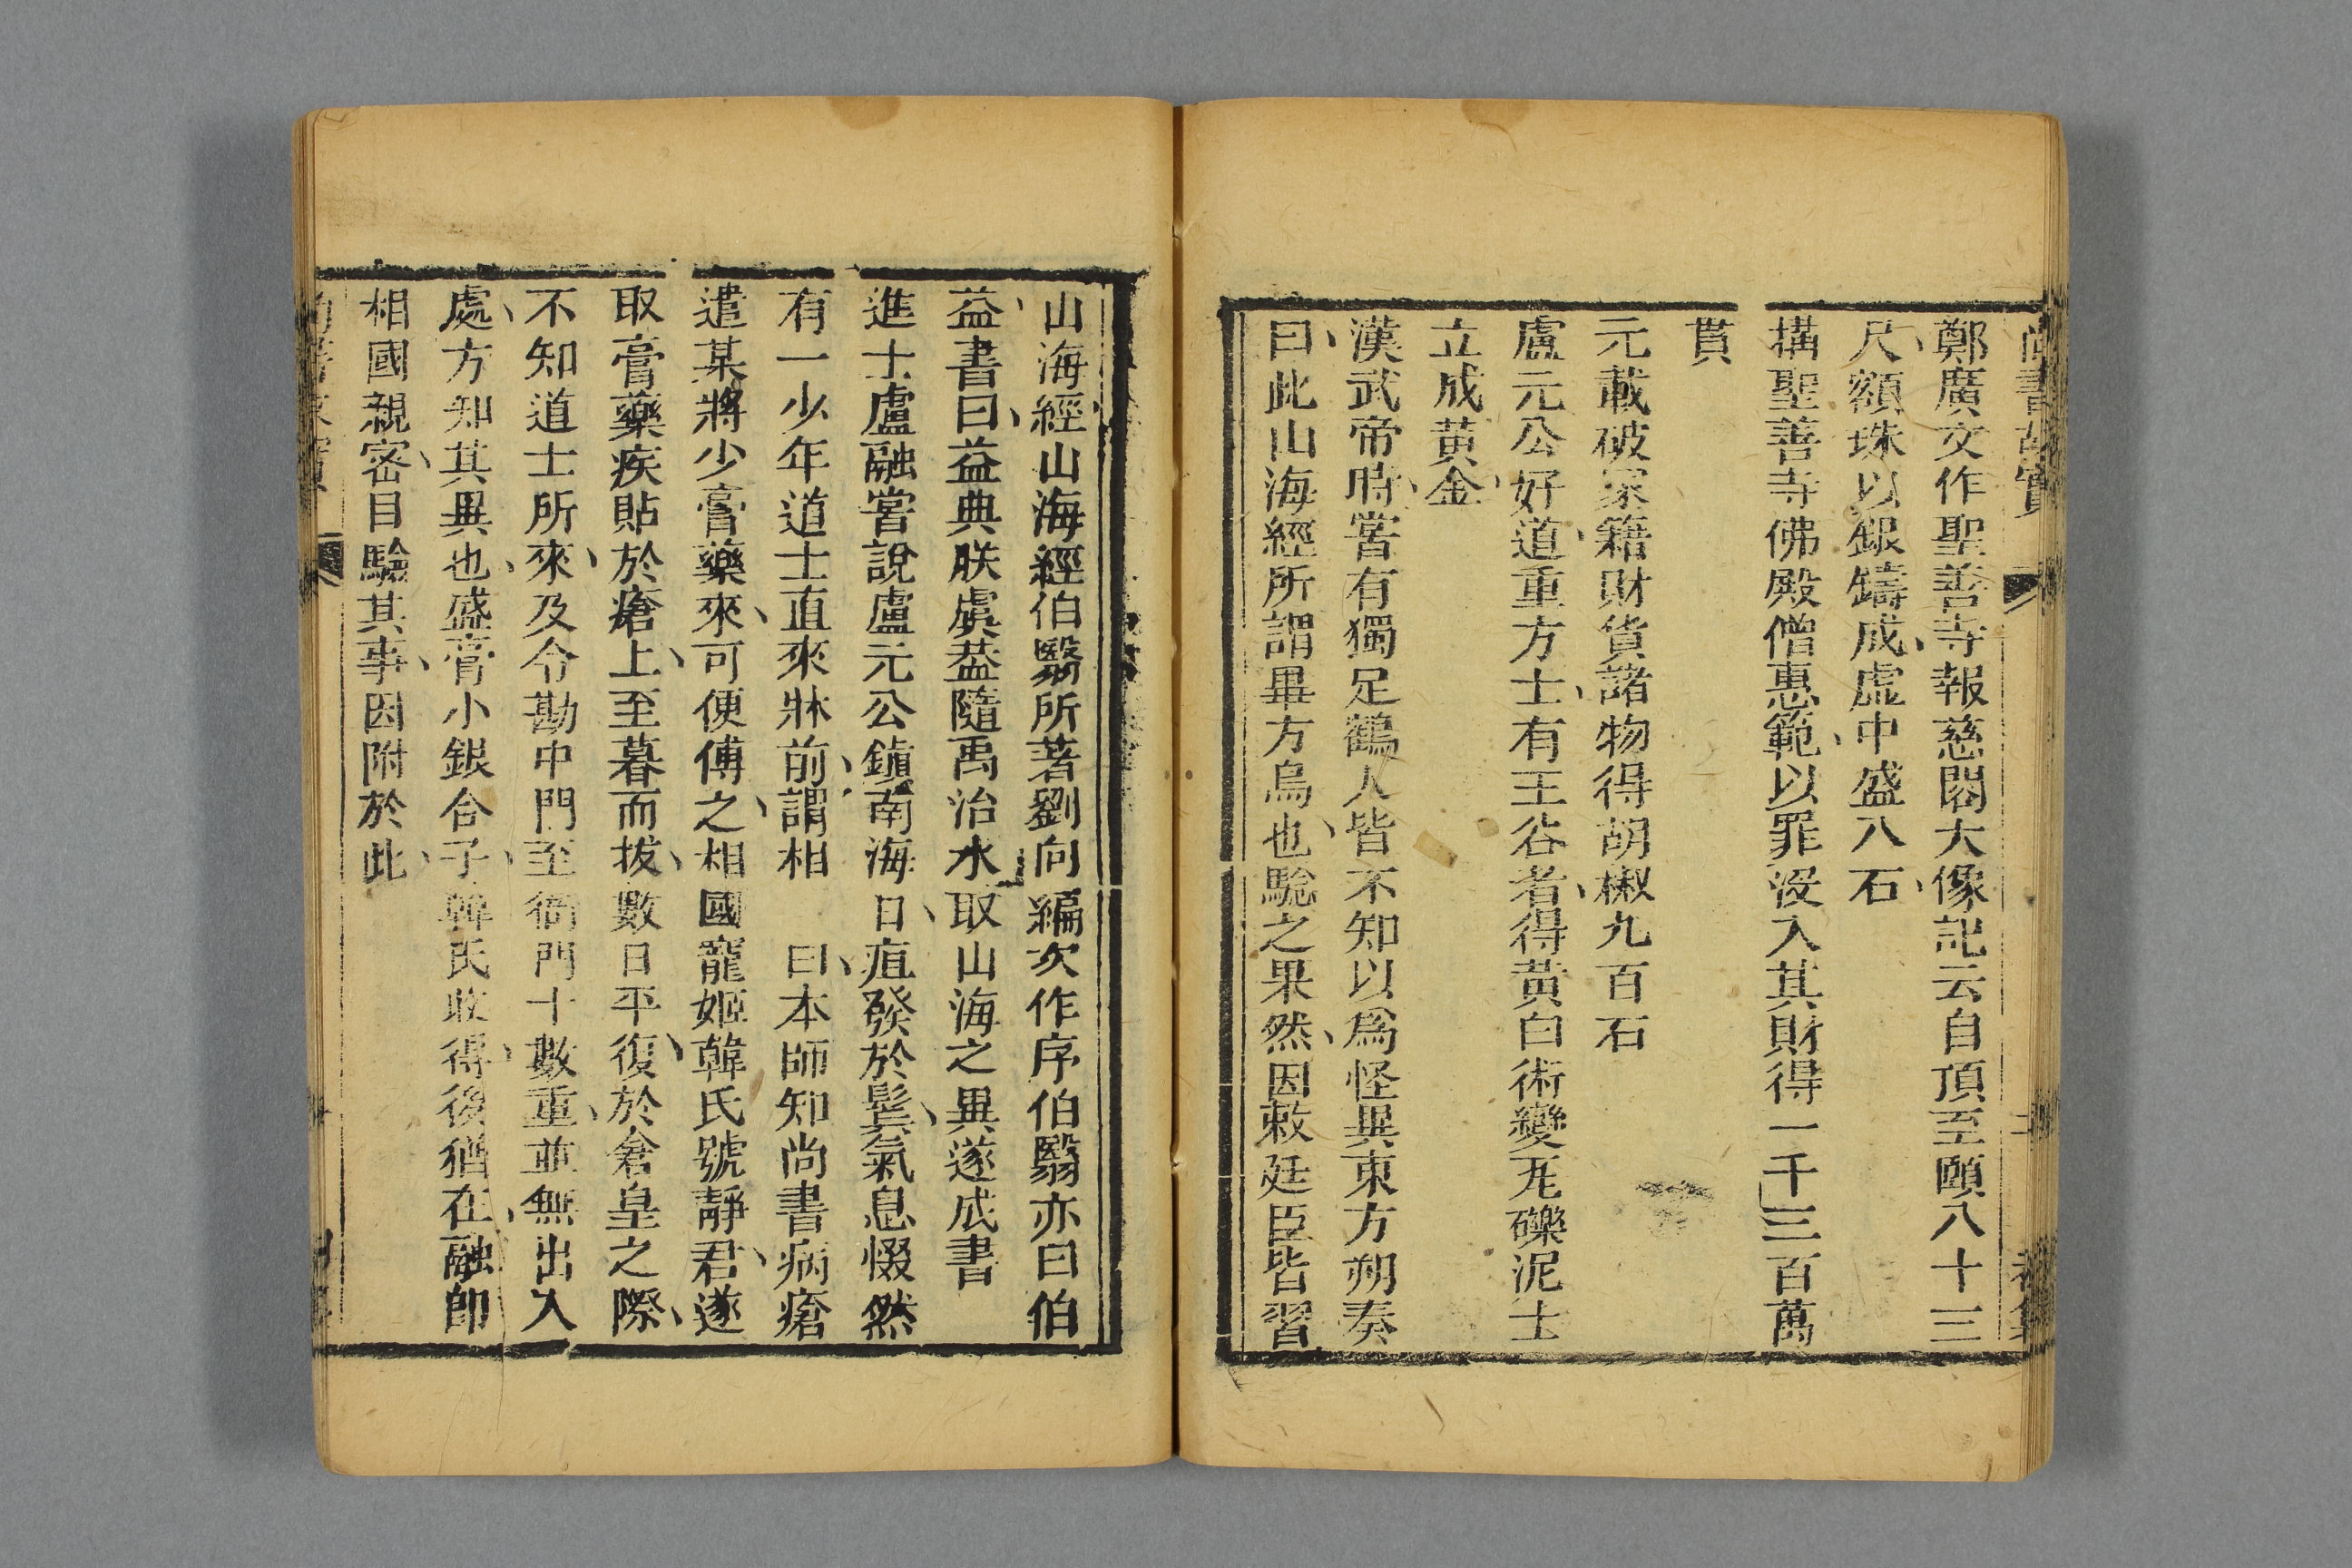 尚書故實
鄭廣文作聖善寺報慈閣大像記云自頂至頤八十三
尺額珠以銀鑄成虛中盛八石
搆聖善寺佛殿僧惠範以罪沒入其財得一千三百萬
貫
元載破家籍財貨諸物得胡椒九百石
盧元公好道重方士有王谷者得黃白術變瓦礫泥土
立成黃金
漢武帝時嘗有獨足鶴人皆不知以為怪異東方朔奏
曰此山海經所謂畢方鳥也驗之果然因敕廷臣皆習
山海經山海經伯翳所著劉向編次作序伯翳亦曰伯
益書曰益典朕虞葢隨禹治水取山海之異遂成書
進士盧融嘗說盧元公鎮南海日疽發於鬢氣息惙然
有一少年道士直來牀前謂相　曰本師知尚書病瘡
遣某將少膏藥來可便傅之相國寵姬韓氏號靜君遂
取膏藥疾貼於瘡上至暮而拔數日平復於倉皇之際
不知道士所來及令勘中門至衙門十數重並無出入
處方知其異也盛膏小銀合子韓氏收得後猶在融卽
相國親密目驗其事因附於此